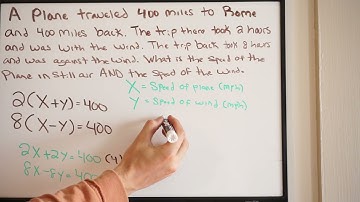 A Plane traveled 400 miles to Rome
and 400 miles back. The trip there took 2 hours
and was with the wind. The trip back took 8 hours
and was against the wind. What is the speed of the
Plane in still air AND the speed of the wind.
2(X+Y)=400
8(X-Y)=400
X = Speed of plane (mph)
Y = Speed of wind (mph)
2X+2Y=400 (4)
8X-8Y=400